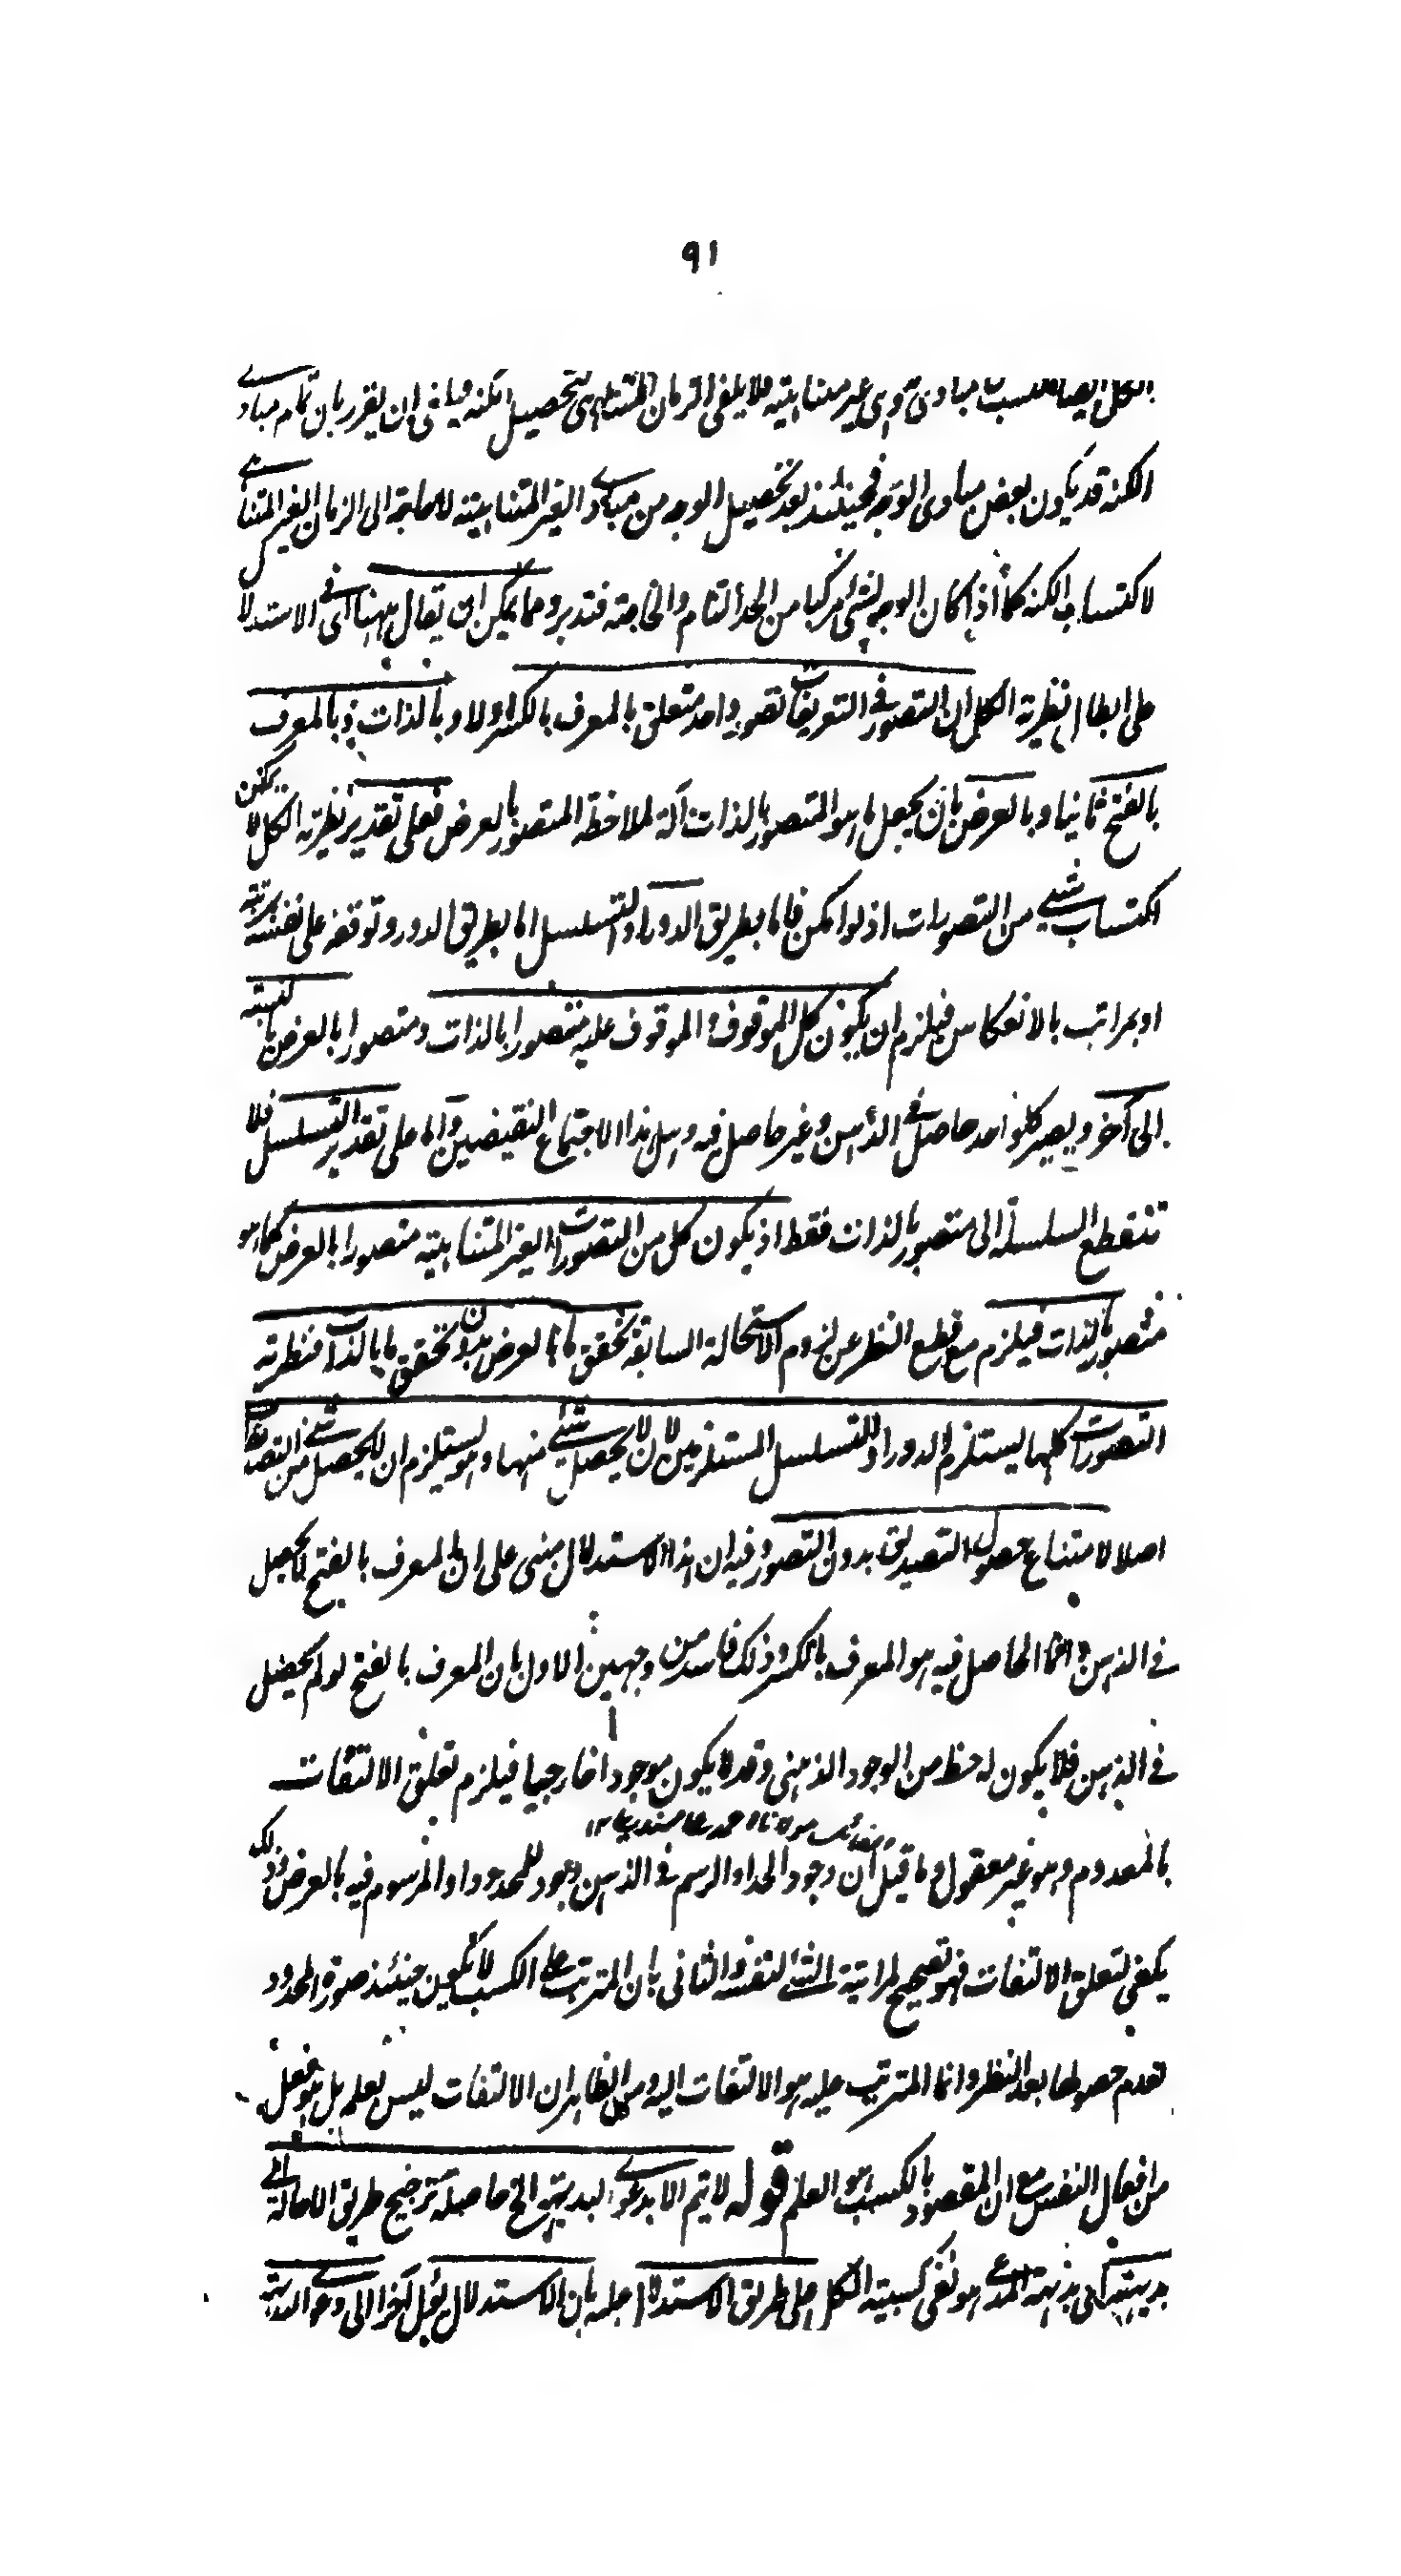 ٩١
مبادى غير متناهية فلا يكفى الزمان المتناهى لتحصيل الكنه ان يقرر بان تمام مبادى
الكنه قد يكون بعض مبادى الوجه فحينئذ بعد تحصيل الوجه من مباديه الغير المتناهية لا حاجة الى الزمان الغير المتناهى
لاكتساب الكنه كما اذا كان الوجه لشئ مركبا من الحد التام والخاصة فتدبر ومما يمكن ان يقال ههنا اى فى الاستدلال
على ابطال نظرية الكل ان التصور فى التعريفات تصور واحد متعلق بالمعرف بالكسر اولا وبالذات وبالمعرف
بالفتح ثانيا وبالعرض بان يجعل ما هو المتصور بالذات آلة لملاحظة المتصور بالعرض فعلى تقدير نظرية الكل لا يمكن
اكتساب شئ من التصورات اذ لو امكن فاما بطريق الدور او التسلسل اما بطريق الدور وتوقفه على نفسه بمرتبة
او بمراتب بالانعكاس فيلزم ان يكون كل الموقوف والموقوف عليه متصورا بالذات ومتصورا بالعرض بالنسبة
الى آخر ويصير كل واحد حاصل فى الذهن وغير حاصل فيه وهل هذا الا اجتماع النقيضين واما على تقدير التسلسل فلا
تنقطع السلسلة الى متصور بالذات فقط اذ يكون كل من التصورات الغير المتناهية متصورا بالعرض كما هو
متصور بالذات فيلزم مع قطع النظر عن لزوم الاستحالة السابقة تحقق ما بالعرض بدون تحقق ما بالذات فنظرية
التصورات كلها يستلزم الدور او التسلسل المستلزمين لان لا يحصل شئ منها وهو يستلزم ان لا يحصل شئ من التصديقات
اصلا لامتناع حصول التصديق بدون التصور وفيه ان هذا الاستدلال مبنى على ان المعرف بالفتح لا يحصل
فى الذهن وانما الحاصل فيه هو المعرف بالكسر وذلك فاسد من وجهين الاول بان المعرف بالفتح لو لم يحصل
فى الذهن فلا يكون له حظ من الوجود الذهنى وقد لا يكون موجودا خارجيا فيلزم تعلق الالتفات
بالمعدوم وهو غير معقول وما قيل ان وجود الحد او الرسم فى الذهن وجود للمحدود او المرسوم فيه بالعرض وذلك
يكفى لتعلق الالتفات فهو تصحيح لمراتبة الشئ لنفسه والثانى بان المترتب على الكسب لا يكون حينئذ صورة المحدود
لعدم حصولها بعد النظر وانما المترتب عليه هو الالتفات اليه ومن الظاهر ان الالتفات ليس بعلم بل هو فعل
من افعال النفس مع ان المقصود بالكسب هو العلم قوله لا يتم الا بدعوى البديهة الخ حاصله ترجيح طريق الاحالة الى
بديهة اى بديهة المدعى هو نفى كسبية الكل على طريق الاستدلال عليه بان الاستدلال يؤل آخرا الى دعوى البديهة